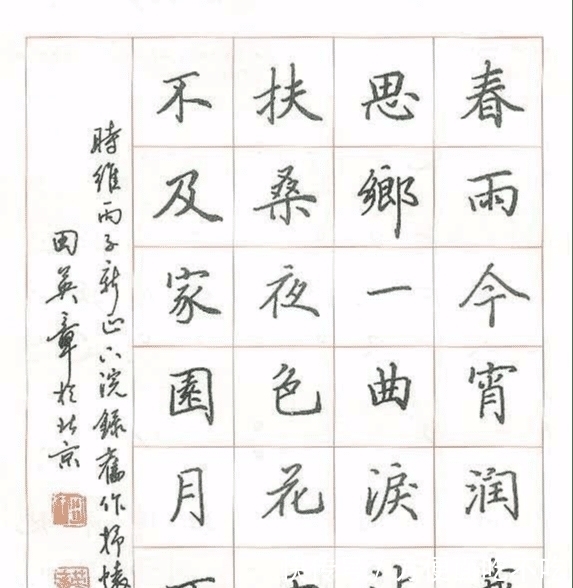 春雨今宵润
思鄉一曲淚
扶桑夜色花
不及家園月
時維丙子新正下浣錄舊作抒
田英章於北京